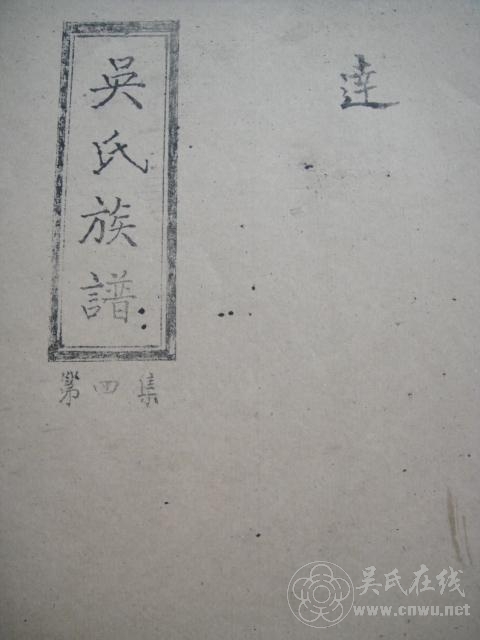 吳氏族譜
第四集
達
吴氏在线
www.cnwu.net